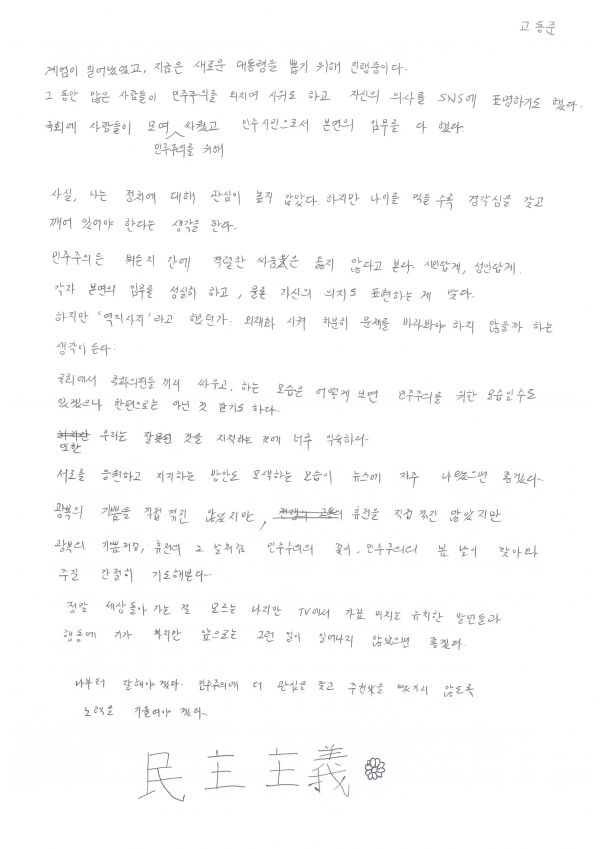 고동준
계엄이 일어났었고, 지금은 새로운 대통령을 뽑기 위해 진행중이다.
그 동안 많은 사람들이 민주주의를 외치며 시위도 하고 자신의 의사를 SNS에 표명하기도 했다.
국회에 사람들이 모여 싸웠고 민주시민으로서 본연의 임무를 다 했다.
민주주의를 위해
사실, 나는 정치에 대해 관심이 높지 않았다. 하지만 나이를 먹을수록 경각심을 갖고
깨어 있어야 한다는 생각을 한다.
민주주의든 뭐든지 간에 격렬한 싸움은 옳지 않다고 본다. 시민답게, 성인답게.
각자 본연의 임무를 성실히 하고, 물론 자신의 의지도 표현하는 게 맞다.
하지만 '역지사지'라고 했던가. 외재화 시켜 차분히 문제를 바라봐야 하지 않을까 하는
생각이 든다.
국회에서 국회의원들 끼리 싸우고, 하는 모습은 어떻게 보면 민주주의를 위한 모습일수도
있겠으나 한편으로는 아닌 것 같기도 하다.
하지만 우리는 잘못된 것을 지적하는 것에 너무 익숙하다.
또한
서로를 응원하고 지지하는 방안도 모색하는 모습이 뉴스에 자주 나왔으면 좋겠다.
광복의 기쁨을 직접 겪진 않았지만, 휴전을 직접 겪진 않았지만
광복의 기쁨처럼, 휴전의 그 날처럼 민주주의의 꽃이, 민주주의의 봄 날이 찾아와
주길 간절히 기도해본다.
정말 세상 돌아 가는 걸 모르는 나지만 TV에서 가끔 비치는 유치한 발언들과
행동에 기가 차지만 앞으로는 그런 일이 일어나지 않았으면 좋겠다.
나부터 잘해야겠다. 민주주의에 더 관심을 갖고 주권을 뺏기지 않도록
노력을 기울여야 겠다.
民主主義